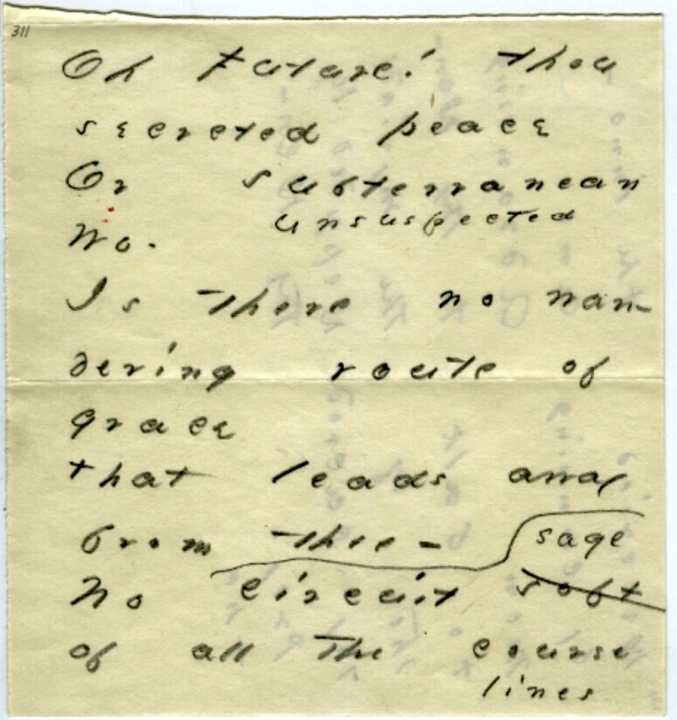 311
Oh Future! thou
secreted peace
Or subterranean
unsuspected
Wo -
Is there no wan-
dering route of
grace
that leads away
from thee -
sage
No circuit soft
of all the course
lines